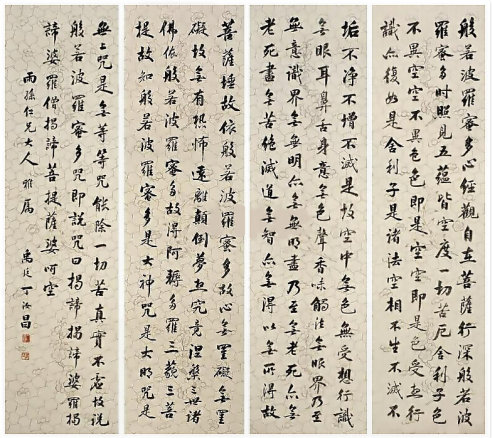 般若波羅蜜多心經觀自在菩薩行深般若波
羅蜜多時照見五蘊皆空度一切苦厄舍利子色
不異空空不異色色即是空空即是色受想行
識亦復如是舍利子是諸法空相不生不滅不
垢不净不增不減是故空中無色無受想行識
無眼耳鼻舌身意無色聲香味觸法無眼界乃至
無意識界無無明亦無無明盡乃至無老死亦無
老死盡無苦集滅道無智亦無得以無所得故
菩薩埵故依般若波羅蜜多故心無罣礙無罣
礙故無有恐怖遠離顛倒夢想究竟涅槃三世諸
佛依般若波羅蜜多故得阿耨多羅三藐三菩
提故知般若波羅蜜多是大神咒是大明咒是
無上咒是無等等咒能除一切苦真實不虛故說
般若波羅蜜多咒即說咒曰揭諦揭諦婆羅揭
諦婆羅僧揭諦菩提薩婆呵空
雨孫仁兄大人雅屬
禹廷丁汝昌